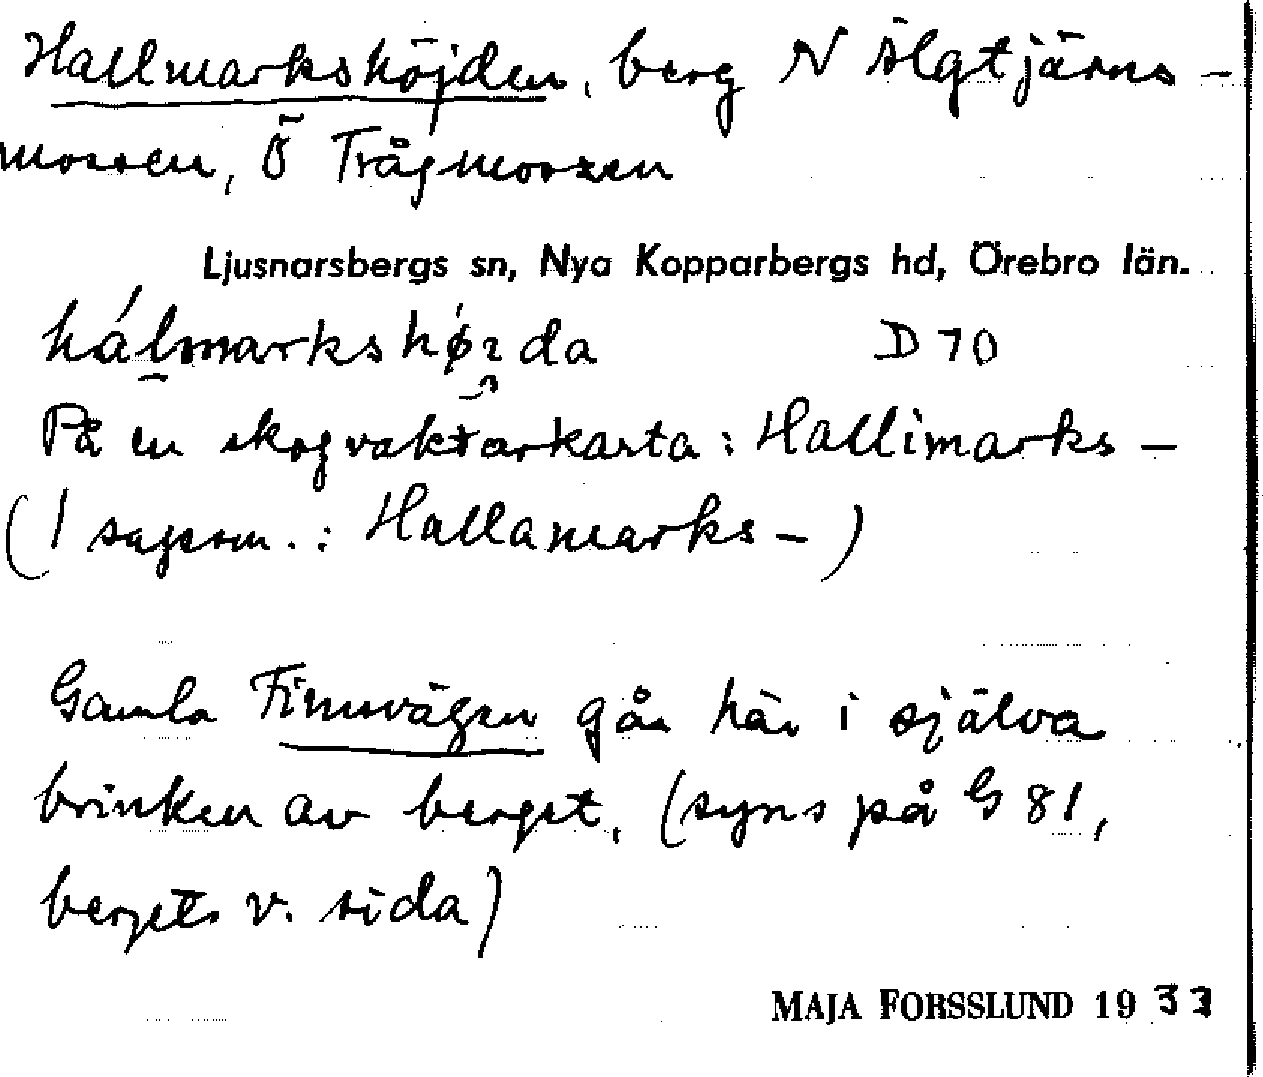 Hallmarkshöjden, berg N Älgtjärns-
mossen, Ö Trågmossen
Ljusnarsbergs sn, Nya Kopparbergs hd, Örebro län.
hálmarkshø̀ɿda D 70
På en skogvaktarkarta: Hallimarks-
(I sagesm.: Hallamarks-)
Gamla Finnvägen går här i själva
brinken av berget, (syns på G 81,
bergets v. sida)
MAJA FORSSLUND 19